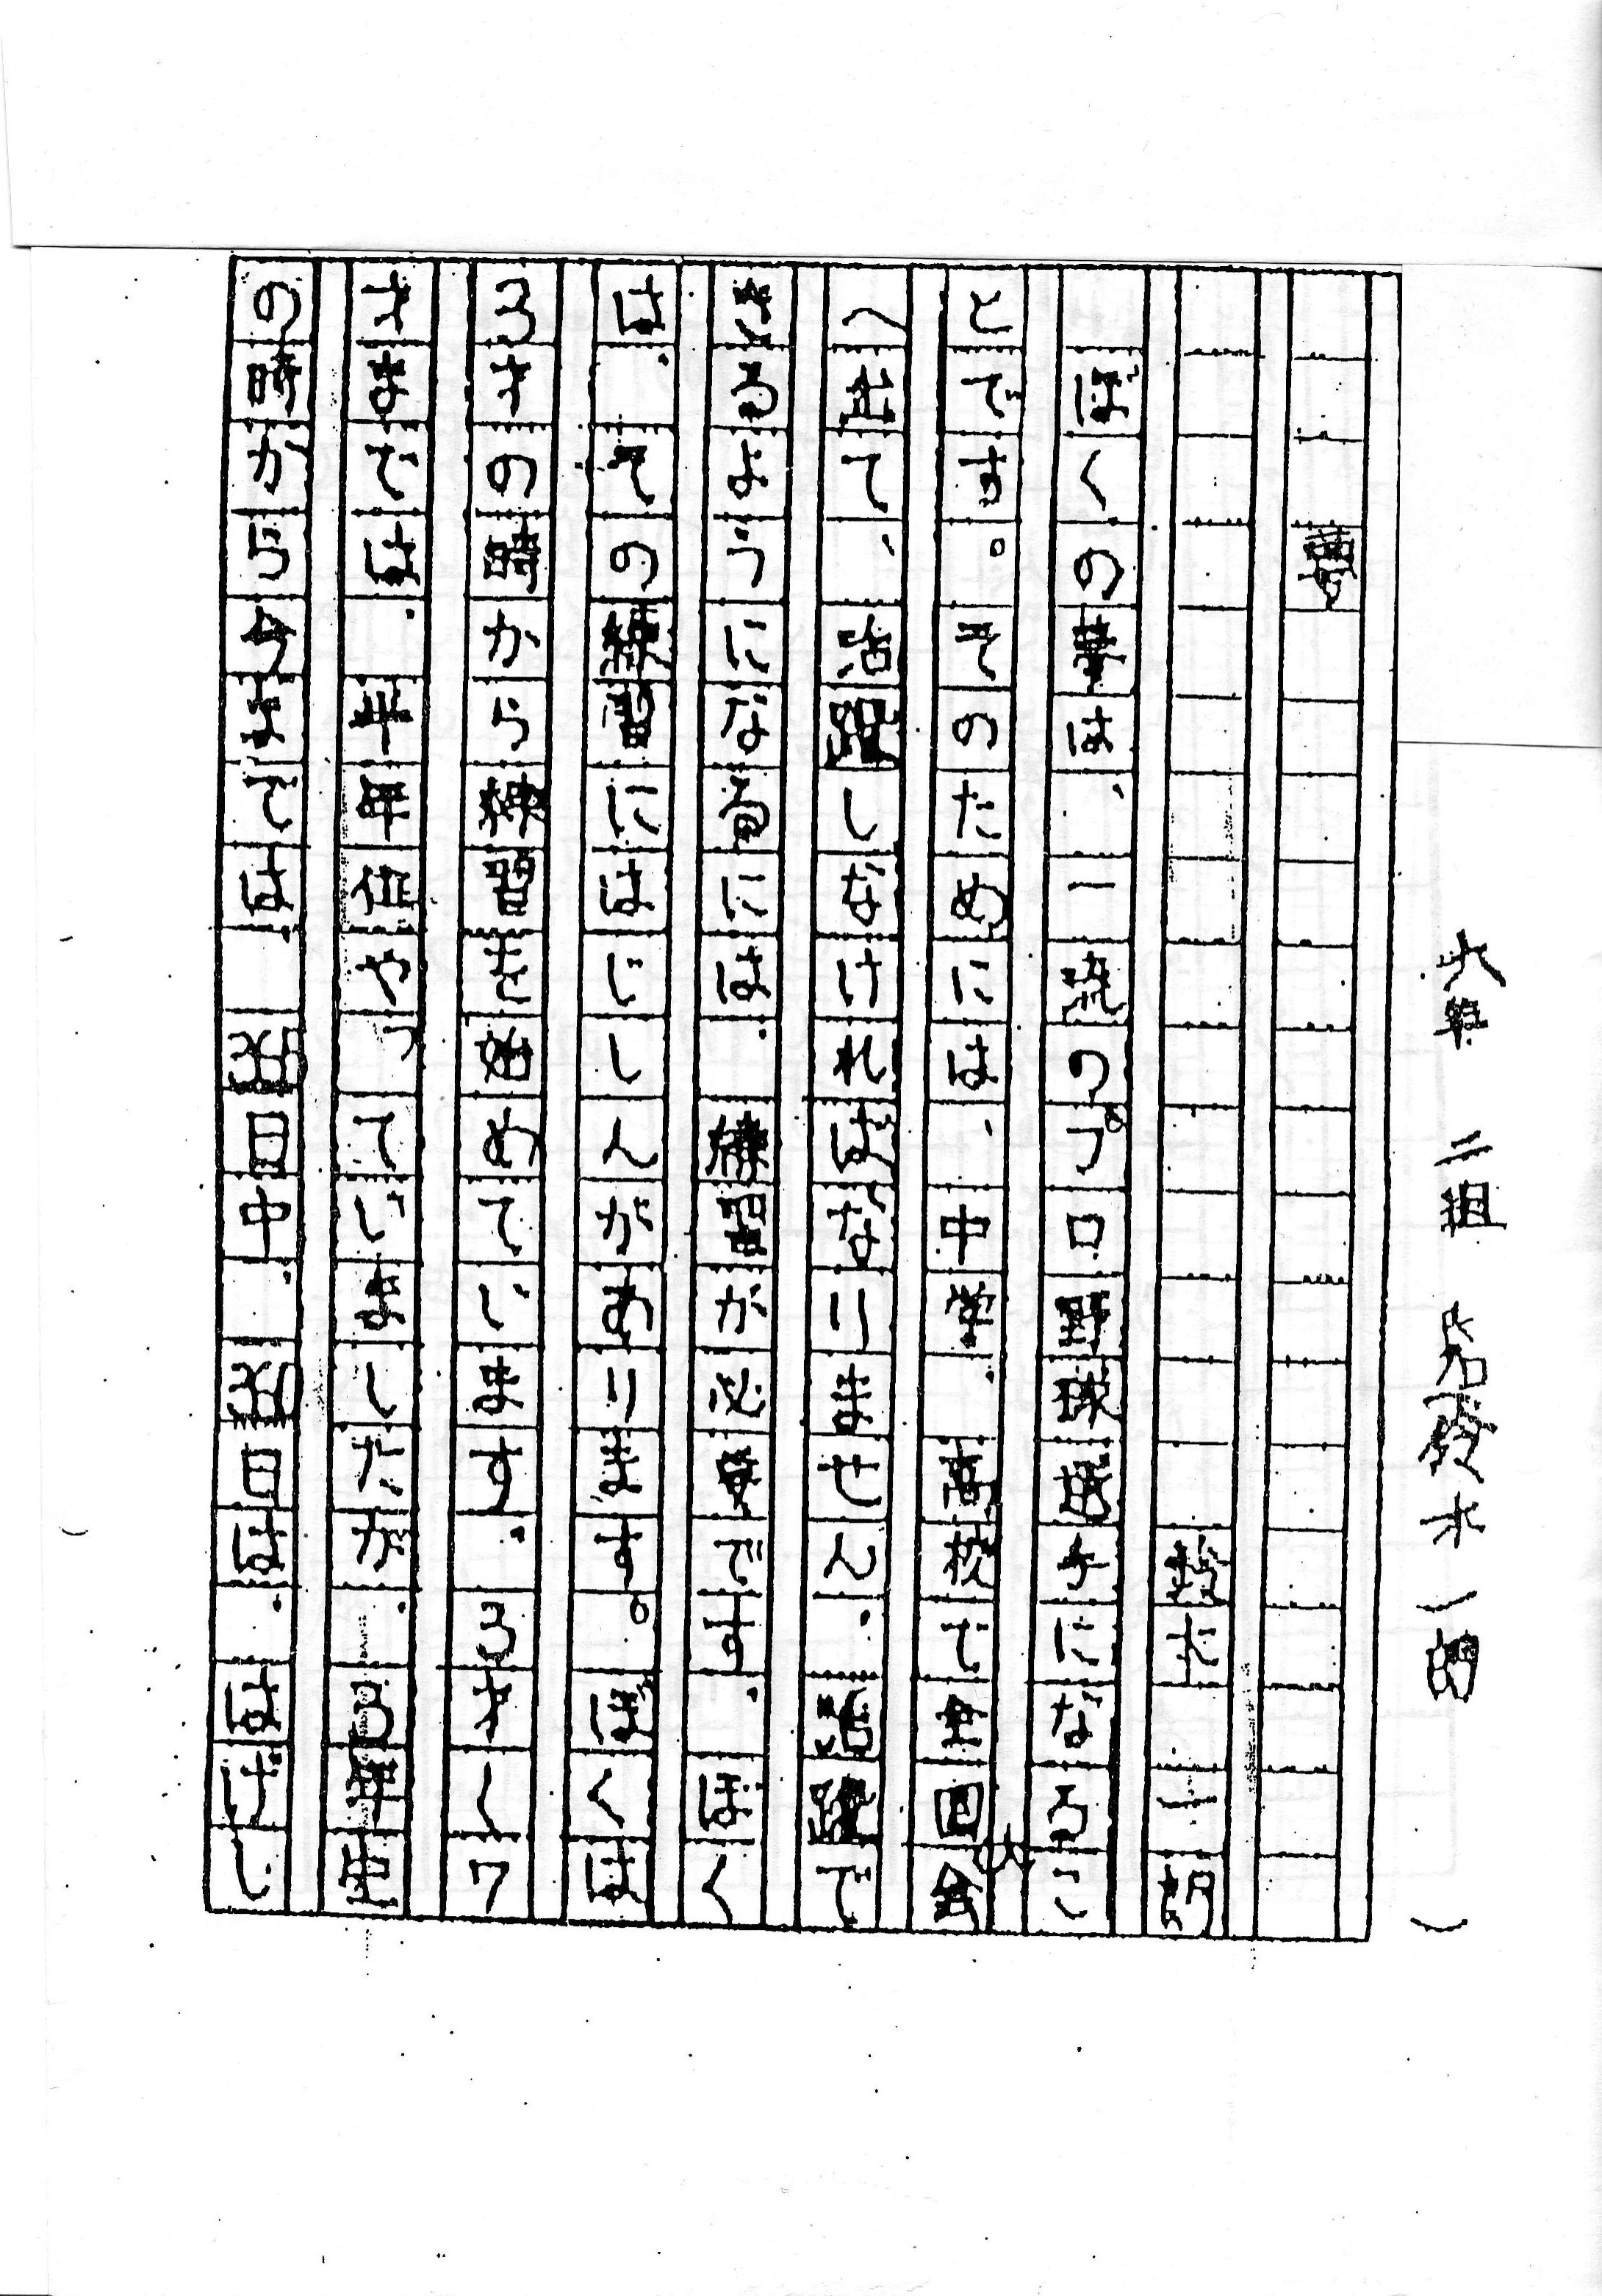 六年 二組 名前 鈴木一朗
夢
鈴木一朗
ぼくの夢は、一流のプロ野球選手になるこ
とです。そのためには、中学、高校で全国大会
へ出て、活躍しなければなりません。活躍で
きるようになるためには、練習が必要です。ぼく
は、その練習にはじしんがあります。ぼくは
3才の時から練習を始めています。3才〜7
才までは、半年位やっていましたが、3年生
の時から今までは、365日中、360日は、はげし